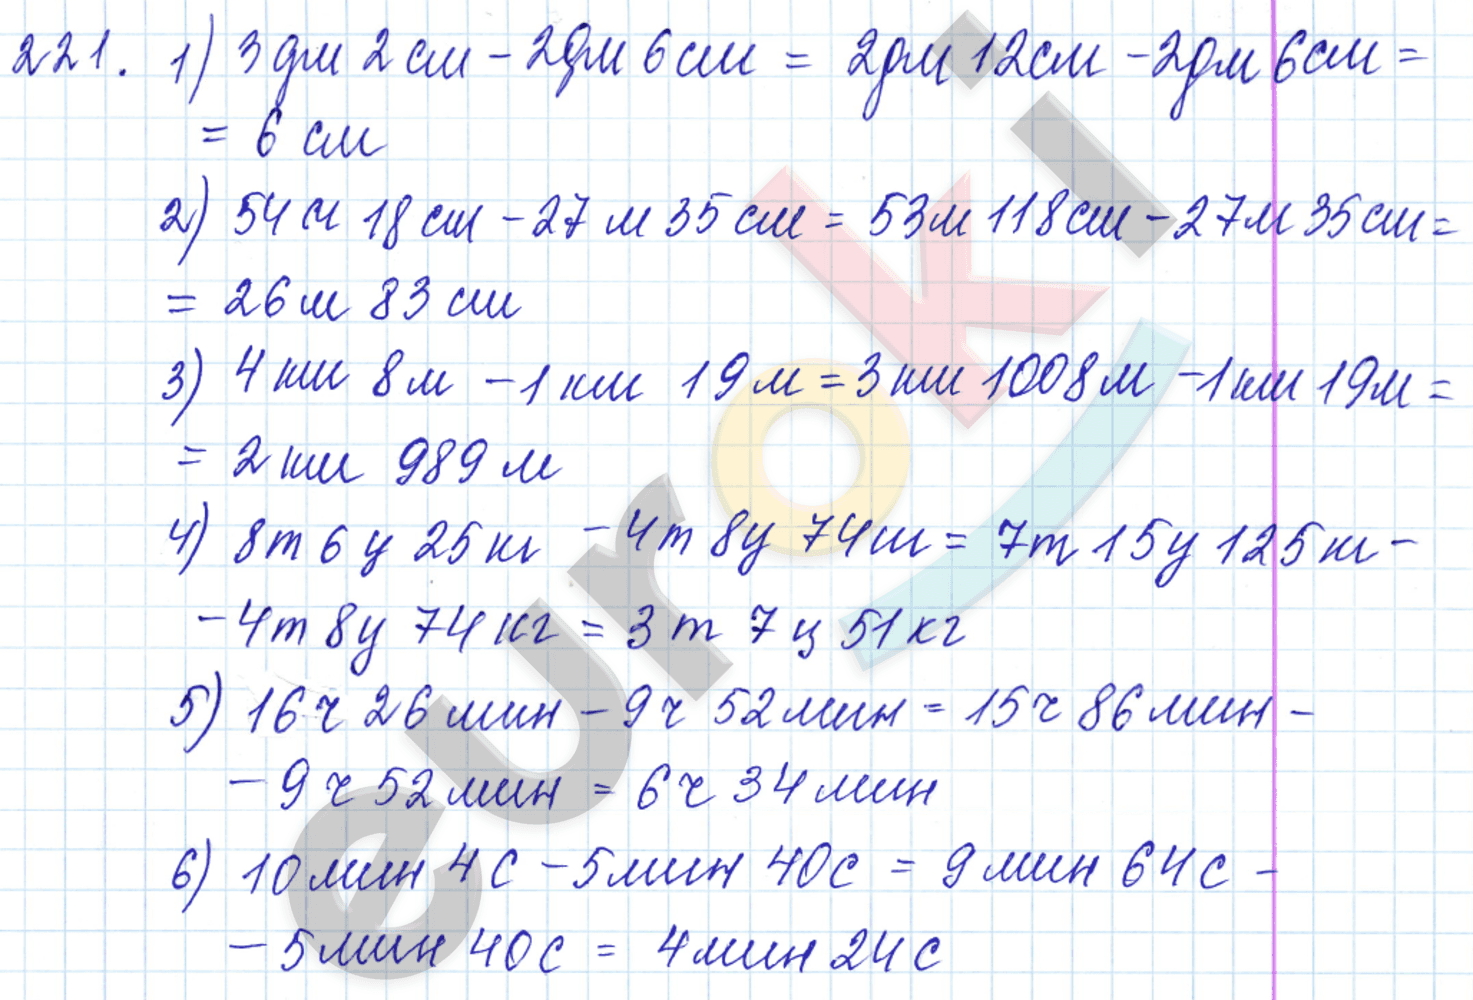 221. 1) 3 дм 2 см - 2 дм 6 см = 2 дм 12 см - 2 дм 6 см =
= 6 см
2) 54 м 18 см - 27 м 35 см = 53 м 118 см - 27 м 35 см =
= 26 м 83 см
3) 4 км 8 м - 1 км 19 м = 3 км 1008 м - 1 км 19 м =
= 2 км 989 м
4) 8 т 6 ц 25 кг - 4 т 8 ц 74 кг = 7 т 15 ц 125 кг -
- 4 т 8 ц 74 кг = 3 т 7 ц 51 кг
5) 16 ч 26 мин - 9 ч 52 мин = 15 ч 86 мин -
- 9 ч 52 мин = 6 ч 34 мин
6) 10 мин 4 с - 5 мин 40 с = 9 мин 64 с -
- 5 мин 40 с = 4 мин 24 с
euroki